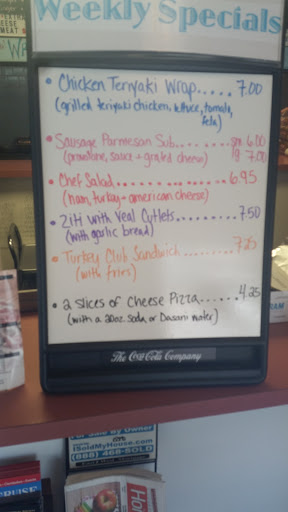 Weekly Specials
• Chicken Teryaki Wrap..... 7.00
(grilled teriyaki chicken, lettuce, tomato,
feta)
• Sausage Parmesan Sub........ sm 6.00
(provolone, sauce + grated cheese) lg 7.00
• Chef Salad............... 6.95
(ham, turkey + american cheese)
• Ziti with Veal Cutlets......... 7.50
(with garlic bread)
• Turkey Club Sandwich......... 7.25
(with fries)
• 2 slices of Cheese Pizza...... 4.25
(with a 20oz soda or Dasani water)
The Coca-Cola Company
For Sale By Owner
iSoldMyHouse.com
(888) 468-SOLD
CRUISE